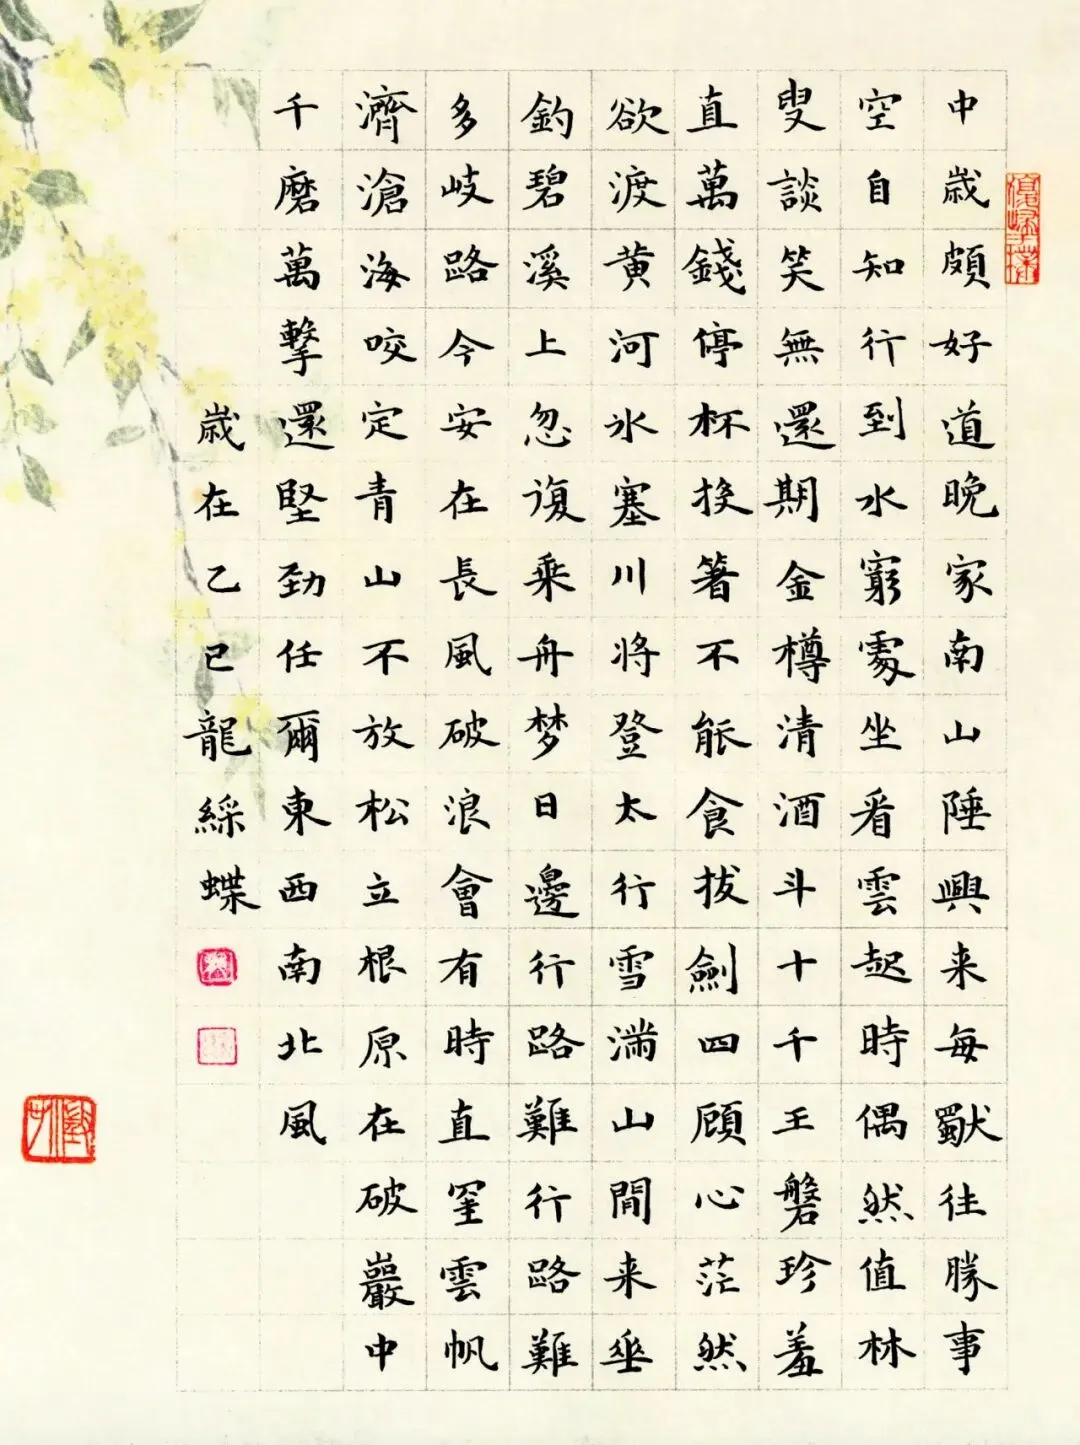 中歲頗好道晚家南山陲興来每獨往勝事
空自知行到水窮處坐看雲起時偶然值林
叟談笑無還期金樽清酒斗十千王磐珍羞
直萬錢停杯投箸不能食拔劍四顧心茫然
欲渡黄河氷塞川將登太行雪滿山間来垂
釣碧溪上忽復乘舟梦日邊行路難行路難
多岐路今安在長風破浪會有時直罣雲帆
濟滄海咬定青山不放松立根原在破巖中
千磨萬擊還堅勁任爾東西南北風
歲在乙巳龍綵蝶